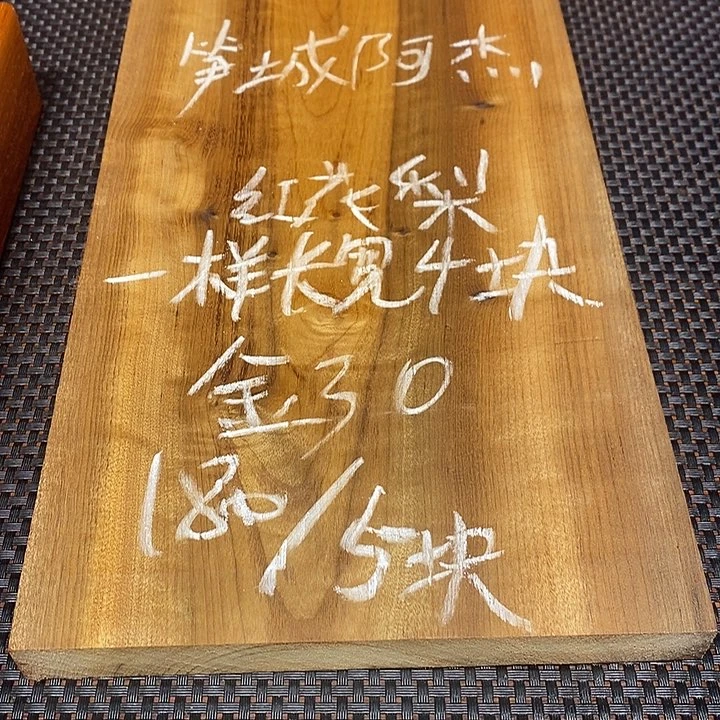 笋城阿杰
红花梨
一样长宽4块
全30
180/5块